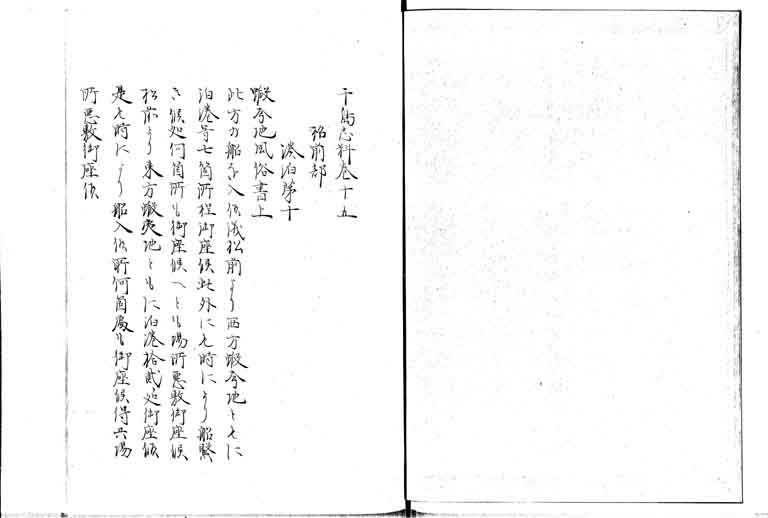 千島志料巻十五
前部
湊泊第十
蝦夷地風俗書上
此方の船を入候儀松前より西方蝦夷地ともに
泊港等七箇所程御座候此外にも時により船繋
き候処何箇所も御座候へとも場所悪敷御座候
松前より東方蝦夷地ともに泊港拾貳処御座候
是も時により船入候所何箇処も御座候得共場
所悪敷御座候